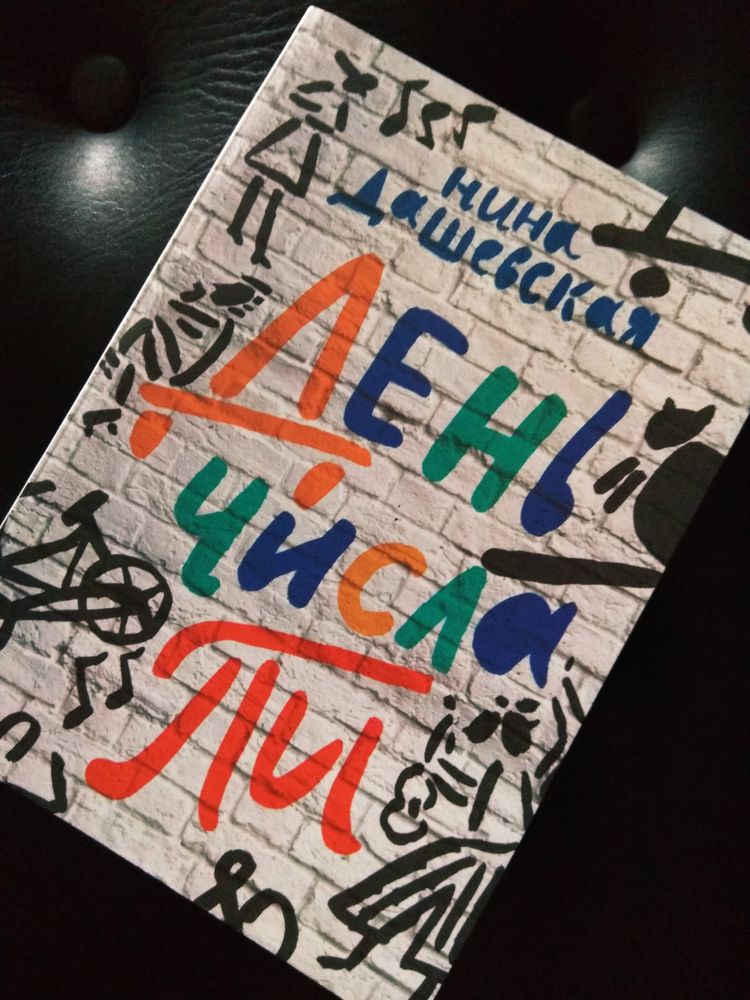 нина
Дашевская
День
числа
Пи